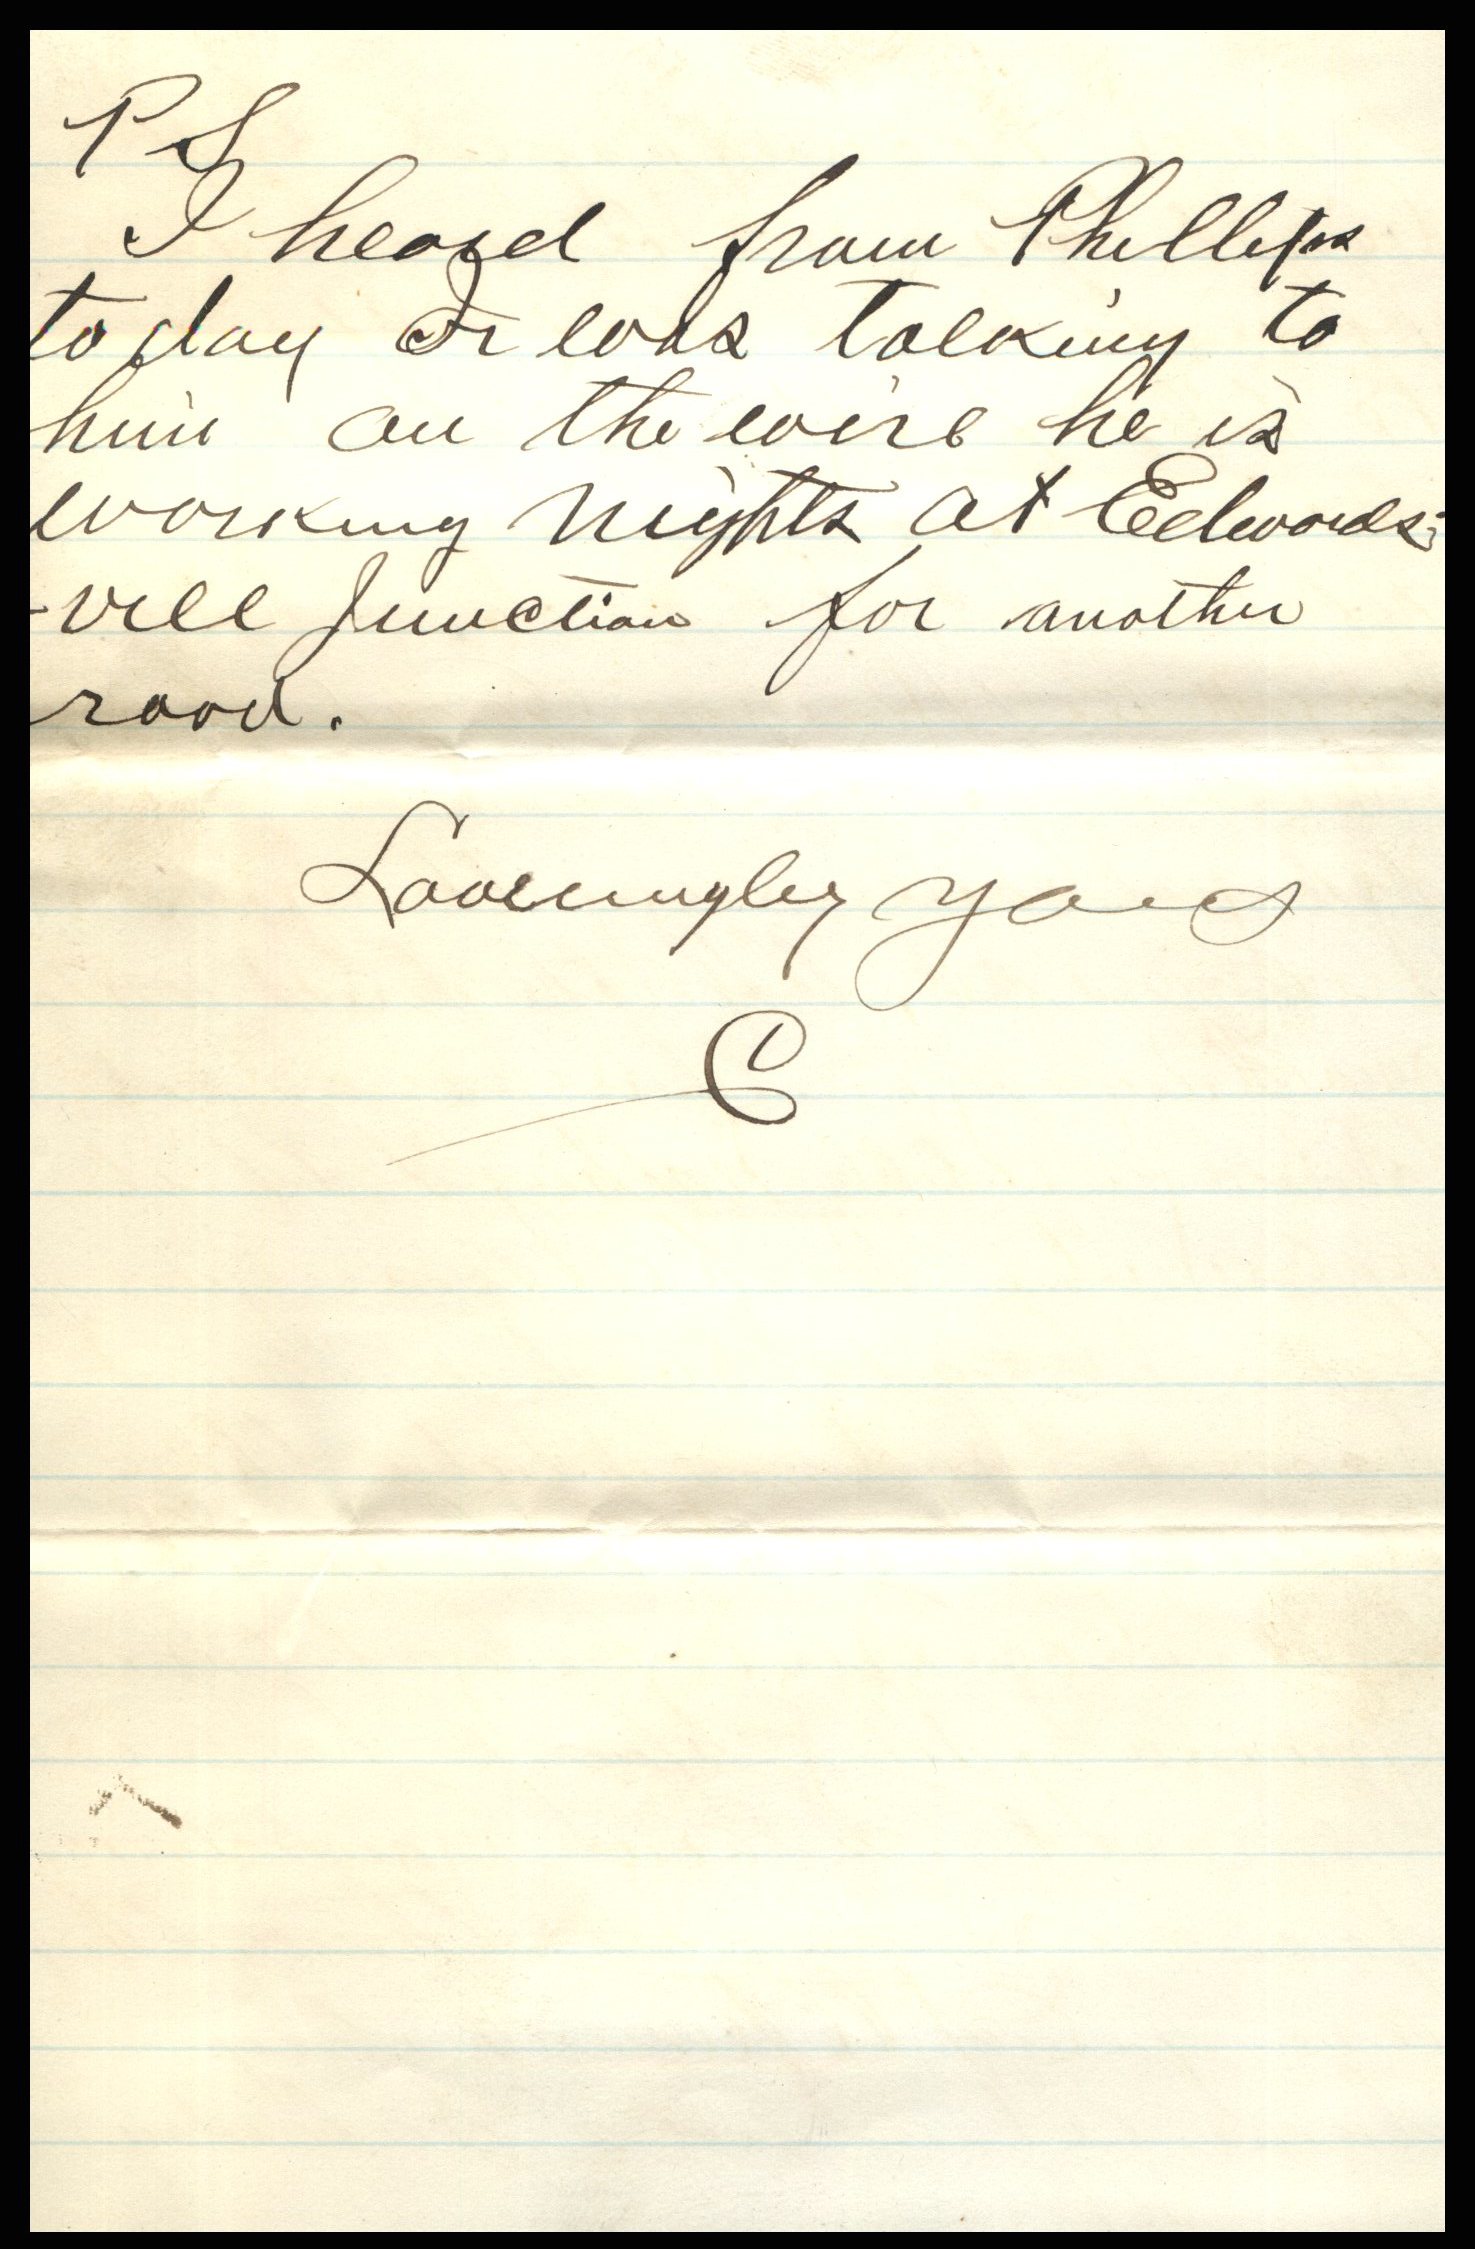 P S
I heard from Phillips
to day I was talking to
him on the wire he is
working nights at Edwards-
-vill Junction for another
road.
Loveingley yours
C